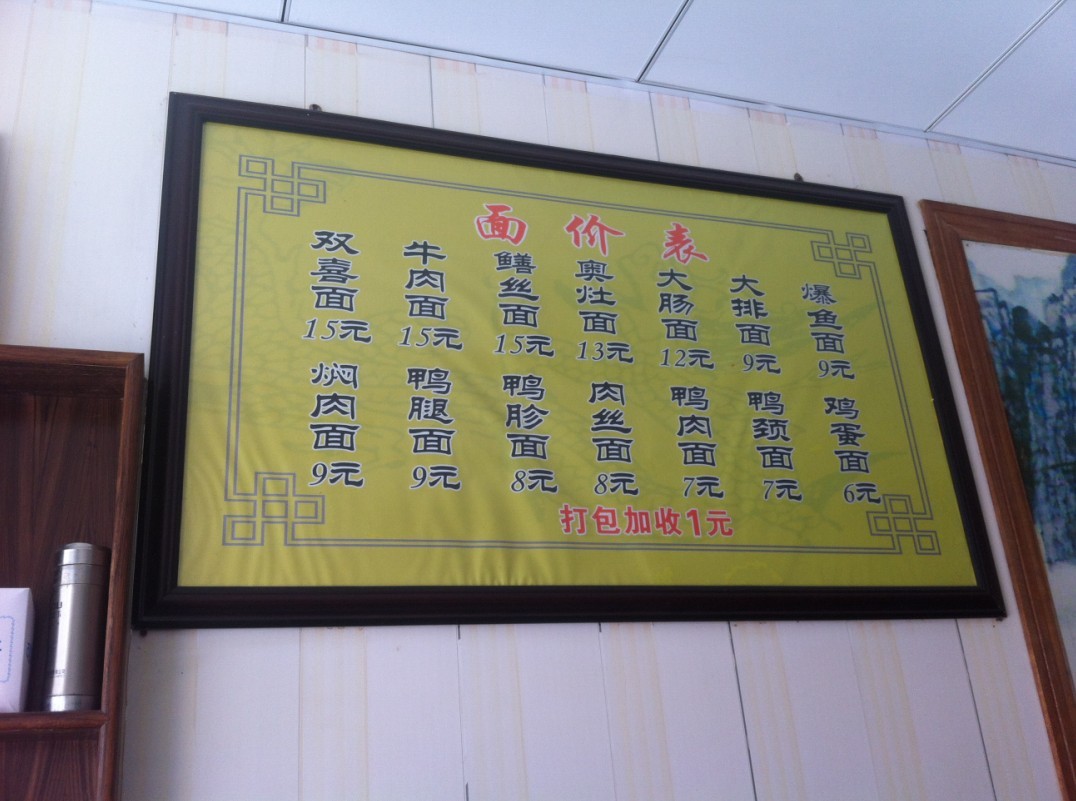 面价表
双喜面 15元
牛肉面 15元
鳝丝面 15元
奥灶面 13元
大肠面 12元
大排面 9元
爆鱼面 9元
焖肉面 9元
鸭腿面 9元
鸭胗面 8元
肉丝面 8元
鸭肉面 7元
鸭颈面 7元
鸡蛋面 6元
打包加收1元